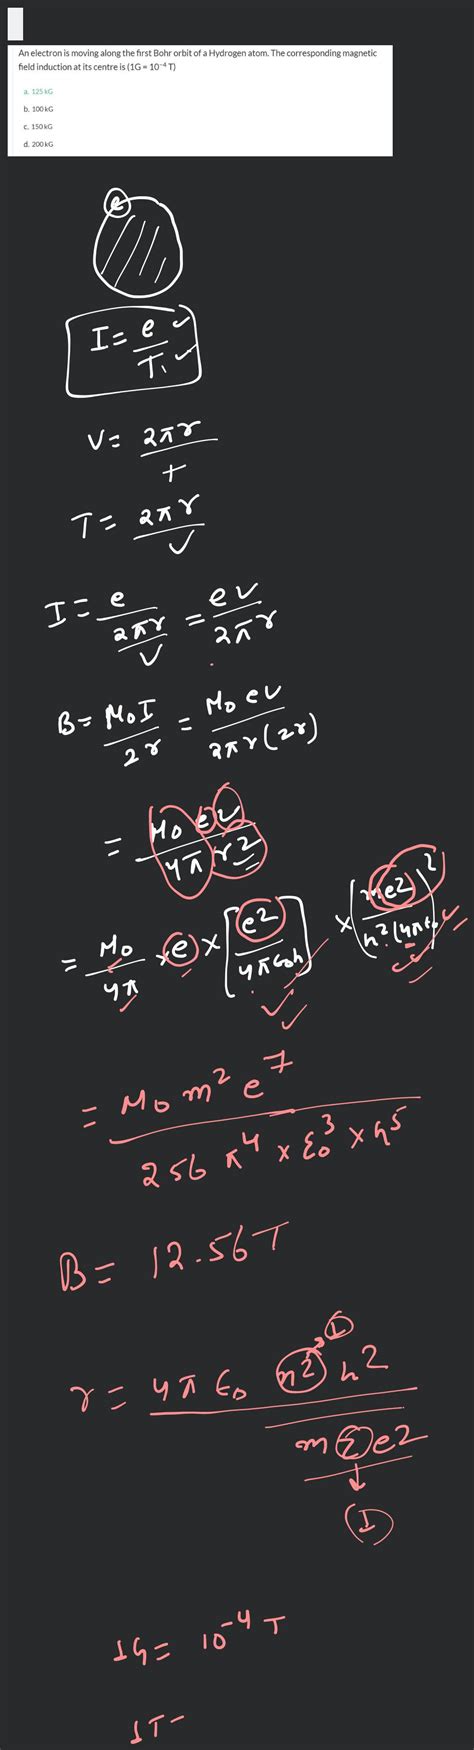 An electron is moving along the first Bohr orbit of a Hydrogen atom. The corresponding magnetic
field induction at its centre is (1G = 10⁻⁴ T)
a. 125 kG
b. 100 kG
c. 150 kG
d. 200 kG
e
I = e/T
V = 2πr/t
T = 2πr/V
I = e/(2πr/V) = eV/2πr
B = M₀I/2r = M₀eV/2πr(2r)
= M₀eV/4πr²
= M₀/4π × e × [e²/4πϵ₀h] × (me²/h²(4πϵ₀))²
= M₀m²e⁷/256π⁴×ε₀³×h⁵
B = 12.56T
r = 4πϵ₀ n² h²/m Z e²
(1)
(1)
1G = 10⁻⁴ T
1T -